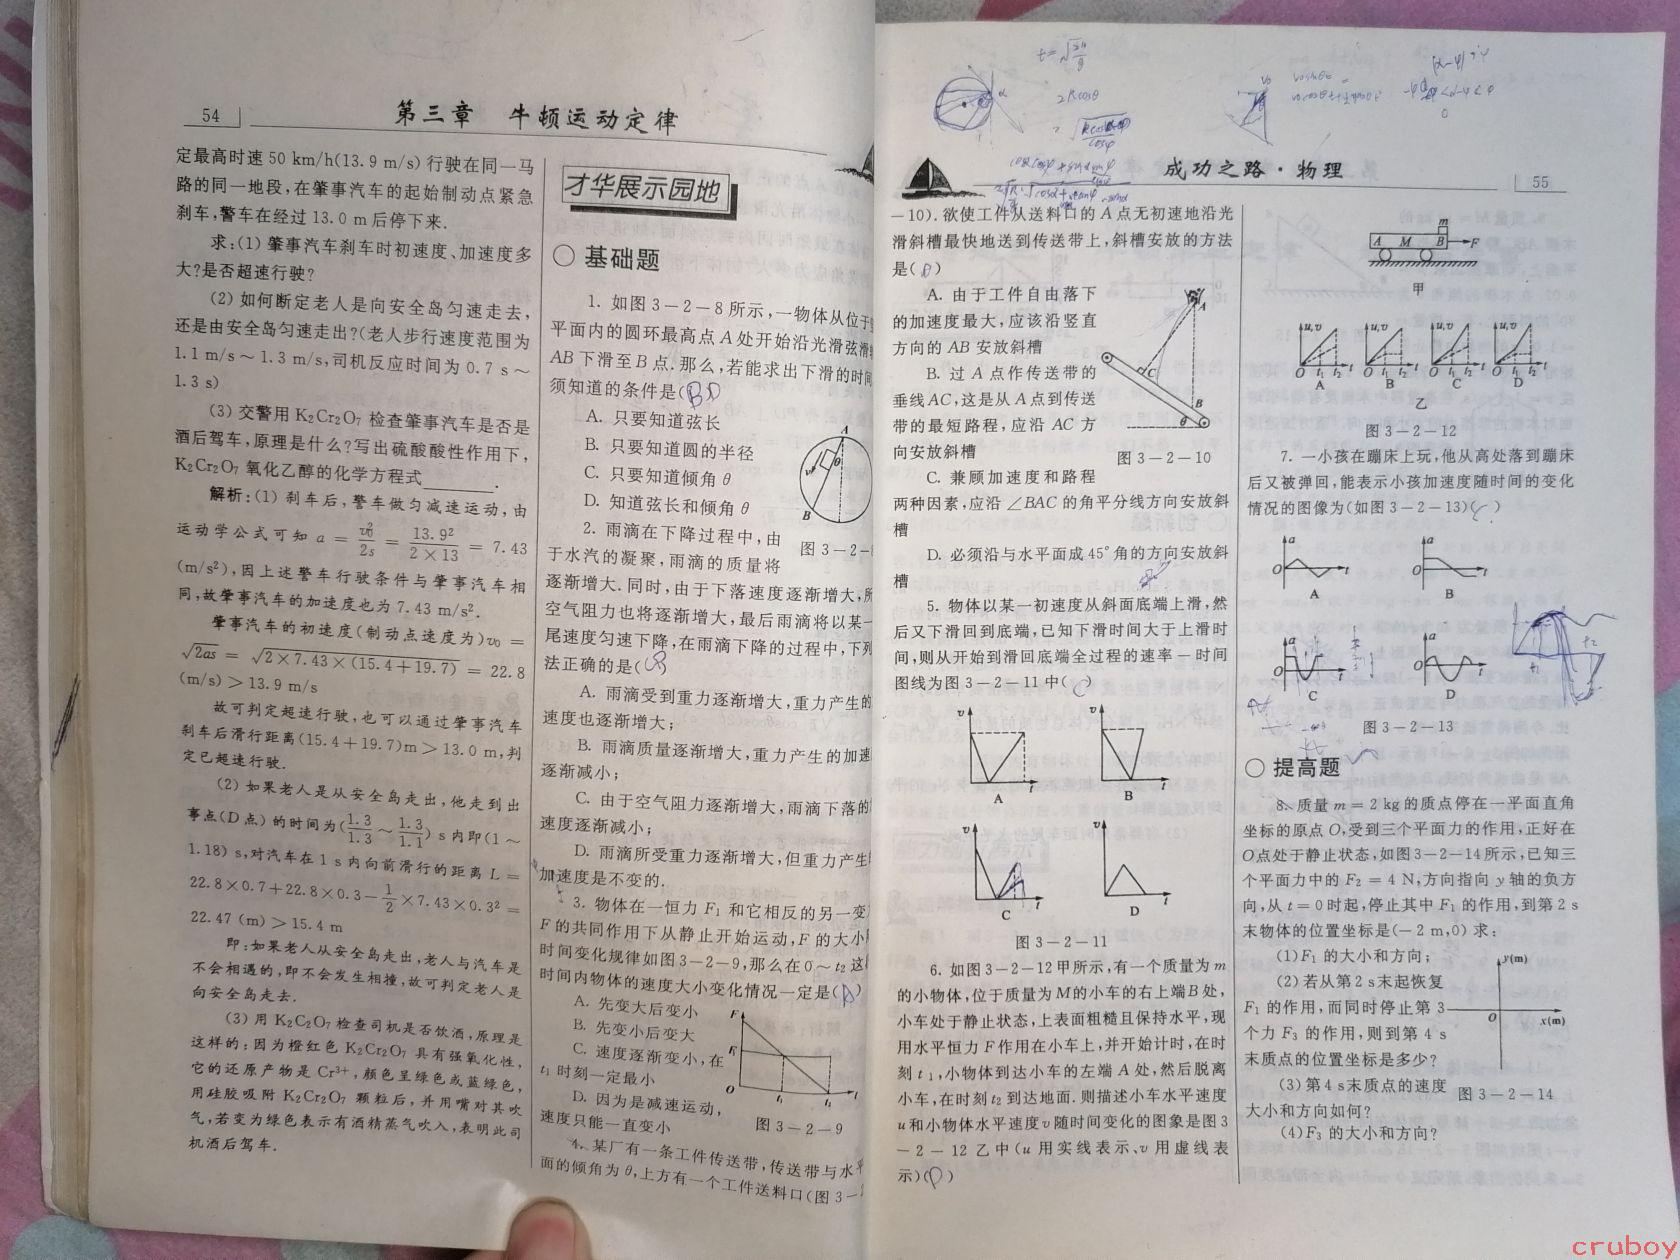 54
第三章 牛顿运动定律
定最高时速 50 km/h(13.9 m/s) 行驶在同一马
路的同一地段,在肇事汽车的起始制动点紧急
刹车,警车在经过 13.0 m 后停下来.
求:(1) 肇事汽车刹车时初速度、加速度多
大?是否超速行驶?
(2) 如何断定老人是向安全岛匀速走去,
还是由安全岛匀速走出?(老人步行速度范围为
1.1 m/s ~ 1.3 m/s,司机反应时间为 0.7 s ~
1.3 s)
(3) 交警用 K₂Cr₂O₇ 检查肇事汽车是否是
酒后驾车,原理是什么?写出硫酸酸性作用下,
K₂Cr₂O₇ 氧化乙醇的化学方程式______.
解析:(1) 刹车后,警车做匀减速运动,由
运动学公式可知 a = v₀²/2s = 13.9²/(2×13) = 7.43
(m/s²),因上述警车行驶条件与肇事汽车相
同,故肇事汽车的加速度也为 7.43 m/s².
肇事汽车的初速度(制动点速度为)v₀ =
√2as = √2×7.43×(15.4+19.7) = 22.8
(m/s) > 13.9 m/s
故可判定超速行驶,也可以通过肇事汽车
刹车后滑行距离(15.4+19.7)m > 13.0 m,判
定已超速行驶.
(2) 如果老人是从安全岛走出,他走到出
事点(D点)的时间为(1.3/1.3 ~ 1.3/1.1) s 内即(1 ~
1.18) s,对汽车在 1 s 内向前滑行的距离 L =
22.8×0.7+22.8×0.3−1/2×7.43×0.3² =
22.47 (m) > 15.4 m
即:如果老人从安全岛走出,老人与汽车是
不会相遇的,即不会发生相撞,故可判定老人是
向安全岛走去.
(3) 用 K₂C₂O₇ 检查司机是否饮酒,原理是
这样的:因为橙红色 K₂Cr₂O₇ 具有强氧化性,
它的还原产物是 Cr³⁺,颜色呈绿色或蓝绿色,
用硅胶吸附 K₂Cr₂O₇ 颗粒后,并用嘴对其吹
气,若变为绿色表示有酒精蒸气吹入,表明此司
机酒后驾车.
才华展示园地
○ 基础题
1. 如图 3−2−8 所示,一物体从位于
平面内的圆环最高点 A 处开始沿光滑弦滑
AB 下滑至 B 点. 那么,若能求出下滑的时间
须知道的条件是(BD
A. 只要知道弦长
B. 只要知道圆的半径
C. 只要知道倾角 θ
D. 知道弦长和倾角 θ
A
θ
B
图 3−2−
2. 雨滴在下降过程中,由
于水汽的凝聚,雨滴的质量将
逐渐增大. 同时,由于下落速度逐渐增大,所
空气阻力也将逐渐增大,最后雨滴将以某一
尾速度匀速下降,在雨滴下降的过程中,下列
法正确的是( )
A. 雨滴受到重力逐渐增大,重力产生的
速度也逐渐增大;
B. 雨滴质量逐渐增大,重力产生的加速
逐渐减小;
C. 由于空气阻力逐渐增大,雨滴下落的
速度逐渐减小;
D. 雨滴所受重力逐渐增大,但重力产生
加速度是不变的.
3. 物体在一恒力 F₁ 和它相反的另一变
F 的共同作用下从静止开始运动,F 的大小
时间变化规律如图 3−2−9,那么在 0 ~ t₂ 这
时间内物体的速度大小变化情况一定是(A)
A. 先变大后变小
B. 先变小后变大
C. 速度逐渐变小,在
t₁ 时刻一定最小
D. 因为是减速运动,
速度只能一直变小
F
O
t₁
t
图 3−2−9
4. 某厂有一条工件传送带,传送带与水平
面的倾角为 θ,上方有一个工件送料口(图 3−
成功之路·物理
55
−10). 欲使工件从送料口的 A 点无初速地沿光
滑斜槽最快地送到传送带上,斜槽安放的方法
是( )
A. 由于工件自由落下
的加速度最大,应该沿竖直
方向的 AB 安放斜槽
B. 过 A 点作传送带的
垂线 AC,这是从 A 点到传送
带的最短路程,应沿 AC 方
向安放斜槽
C. 兼顾加速度和路程
两种因素,应沿 ∠BAC 的角平分线方向安放斜
槽
D. 必须沿与水平面成 45° 角的方向安放斜
槽
A
C
B
θ
图 3−2−10
5. 物体以某一初速度从斜面底端上滑,然
后又下滑回到底端,已知下滑时间大于上滑时
间,则从开始到滑回底端全过程的速率 — 时间
图线为图 3−2−11 中(C)
v t A
v t B
v t C
v t D
图 3−2−11
6. 如图 3−2−12 甲所示,有一个质量为 m
的小物体,位于质量为 M 的小车的右上端 B 处,
小车处于静止状态,上表面粗糙且保持水平,现
用水平恒力 F 作用在小车上,并开始计时,在时
刻 t₁,小物体到达小车的左端 A 处,然后脱离
小车,在时刻 t₂ 到达地面. 则描述小车水平速度
u 和小物体水平速度 v 随时间变化的图象是图 3
−2−12 乙中 (u 用实线表示、v 用虚线表
示)(D)
m
A M B F
甲
u,v u,v u,v u,v
O t₁ t₂ t O t₁ t₂ t O t₁ t₂ t O t₁ t₂ t
A B C D
乙
图 3−2−12
7. 一小孩在蹦床上玩,他从高处落到蹦床
后又被弹回,能表示小孩加速度随时间的变化
情况的图像为(如图 3−2−13)(C)
a O t A
a O t B
a O t C
a O t D
图 3−2−13
○ 提高题
8. 质量 m = 2 kg 的质点停在一平面直角
坐标的原点 O,受到三个平面力的作用,正好在
O 点处于静止状态,如图 3−2−14 所示,已知三
个平面力中的 F₂ = 4 N,方向指向 y 轴的负方
向,从 t = 0 时起,停止其中 F₁ 的作用,到第 2 s
末物体的位置坐标是(−2 m,0) 求:
(1)F₁ 的大小和方向;
(2) 若从第 2 s 末起恢复
F₁ 的作用,而同时停止第 3
个力 F₃ 的作用,则到第 4 s
末质点的位置坐标是多少?
(3) 第 4 s 末质点的速度
大小和方向如何?
(4)F₃ 的大小和方向?
y(m)
O
x(m)
图 3−2−14
cruboy